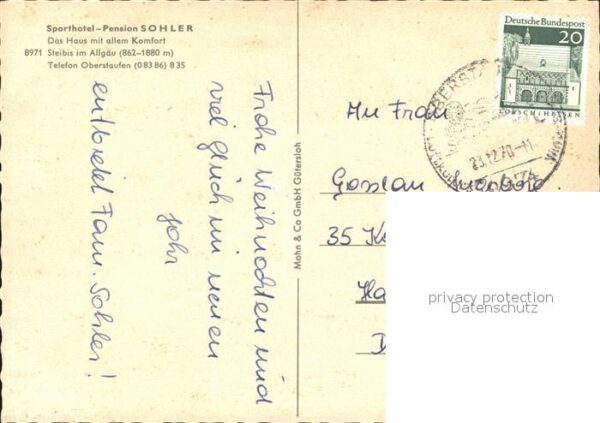 Sporthotel-Pension SOHLER
Das Haus mit allem Komfort
8971 Steibis im Allgäu (862-1880 m)
Telefon Oberstaufen (0 83 86) 8 35
Frohe Weihnachten und
viel Glück im neuen
Jahr
entbietet Fam. Sohler!
Mohn & Co GmbH Gütersloh
Deutsche Bundespost
20
LORSCH/HESSEN
23.12.70
An Frau
35 K
Ha
D
privacy protection
Datenschutz